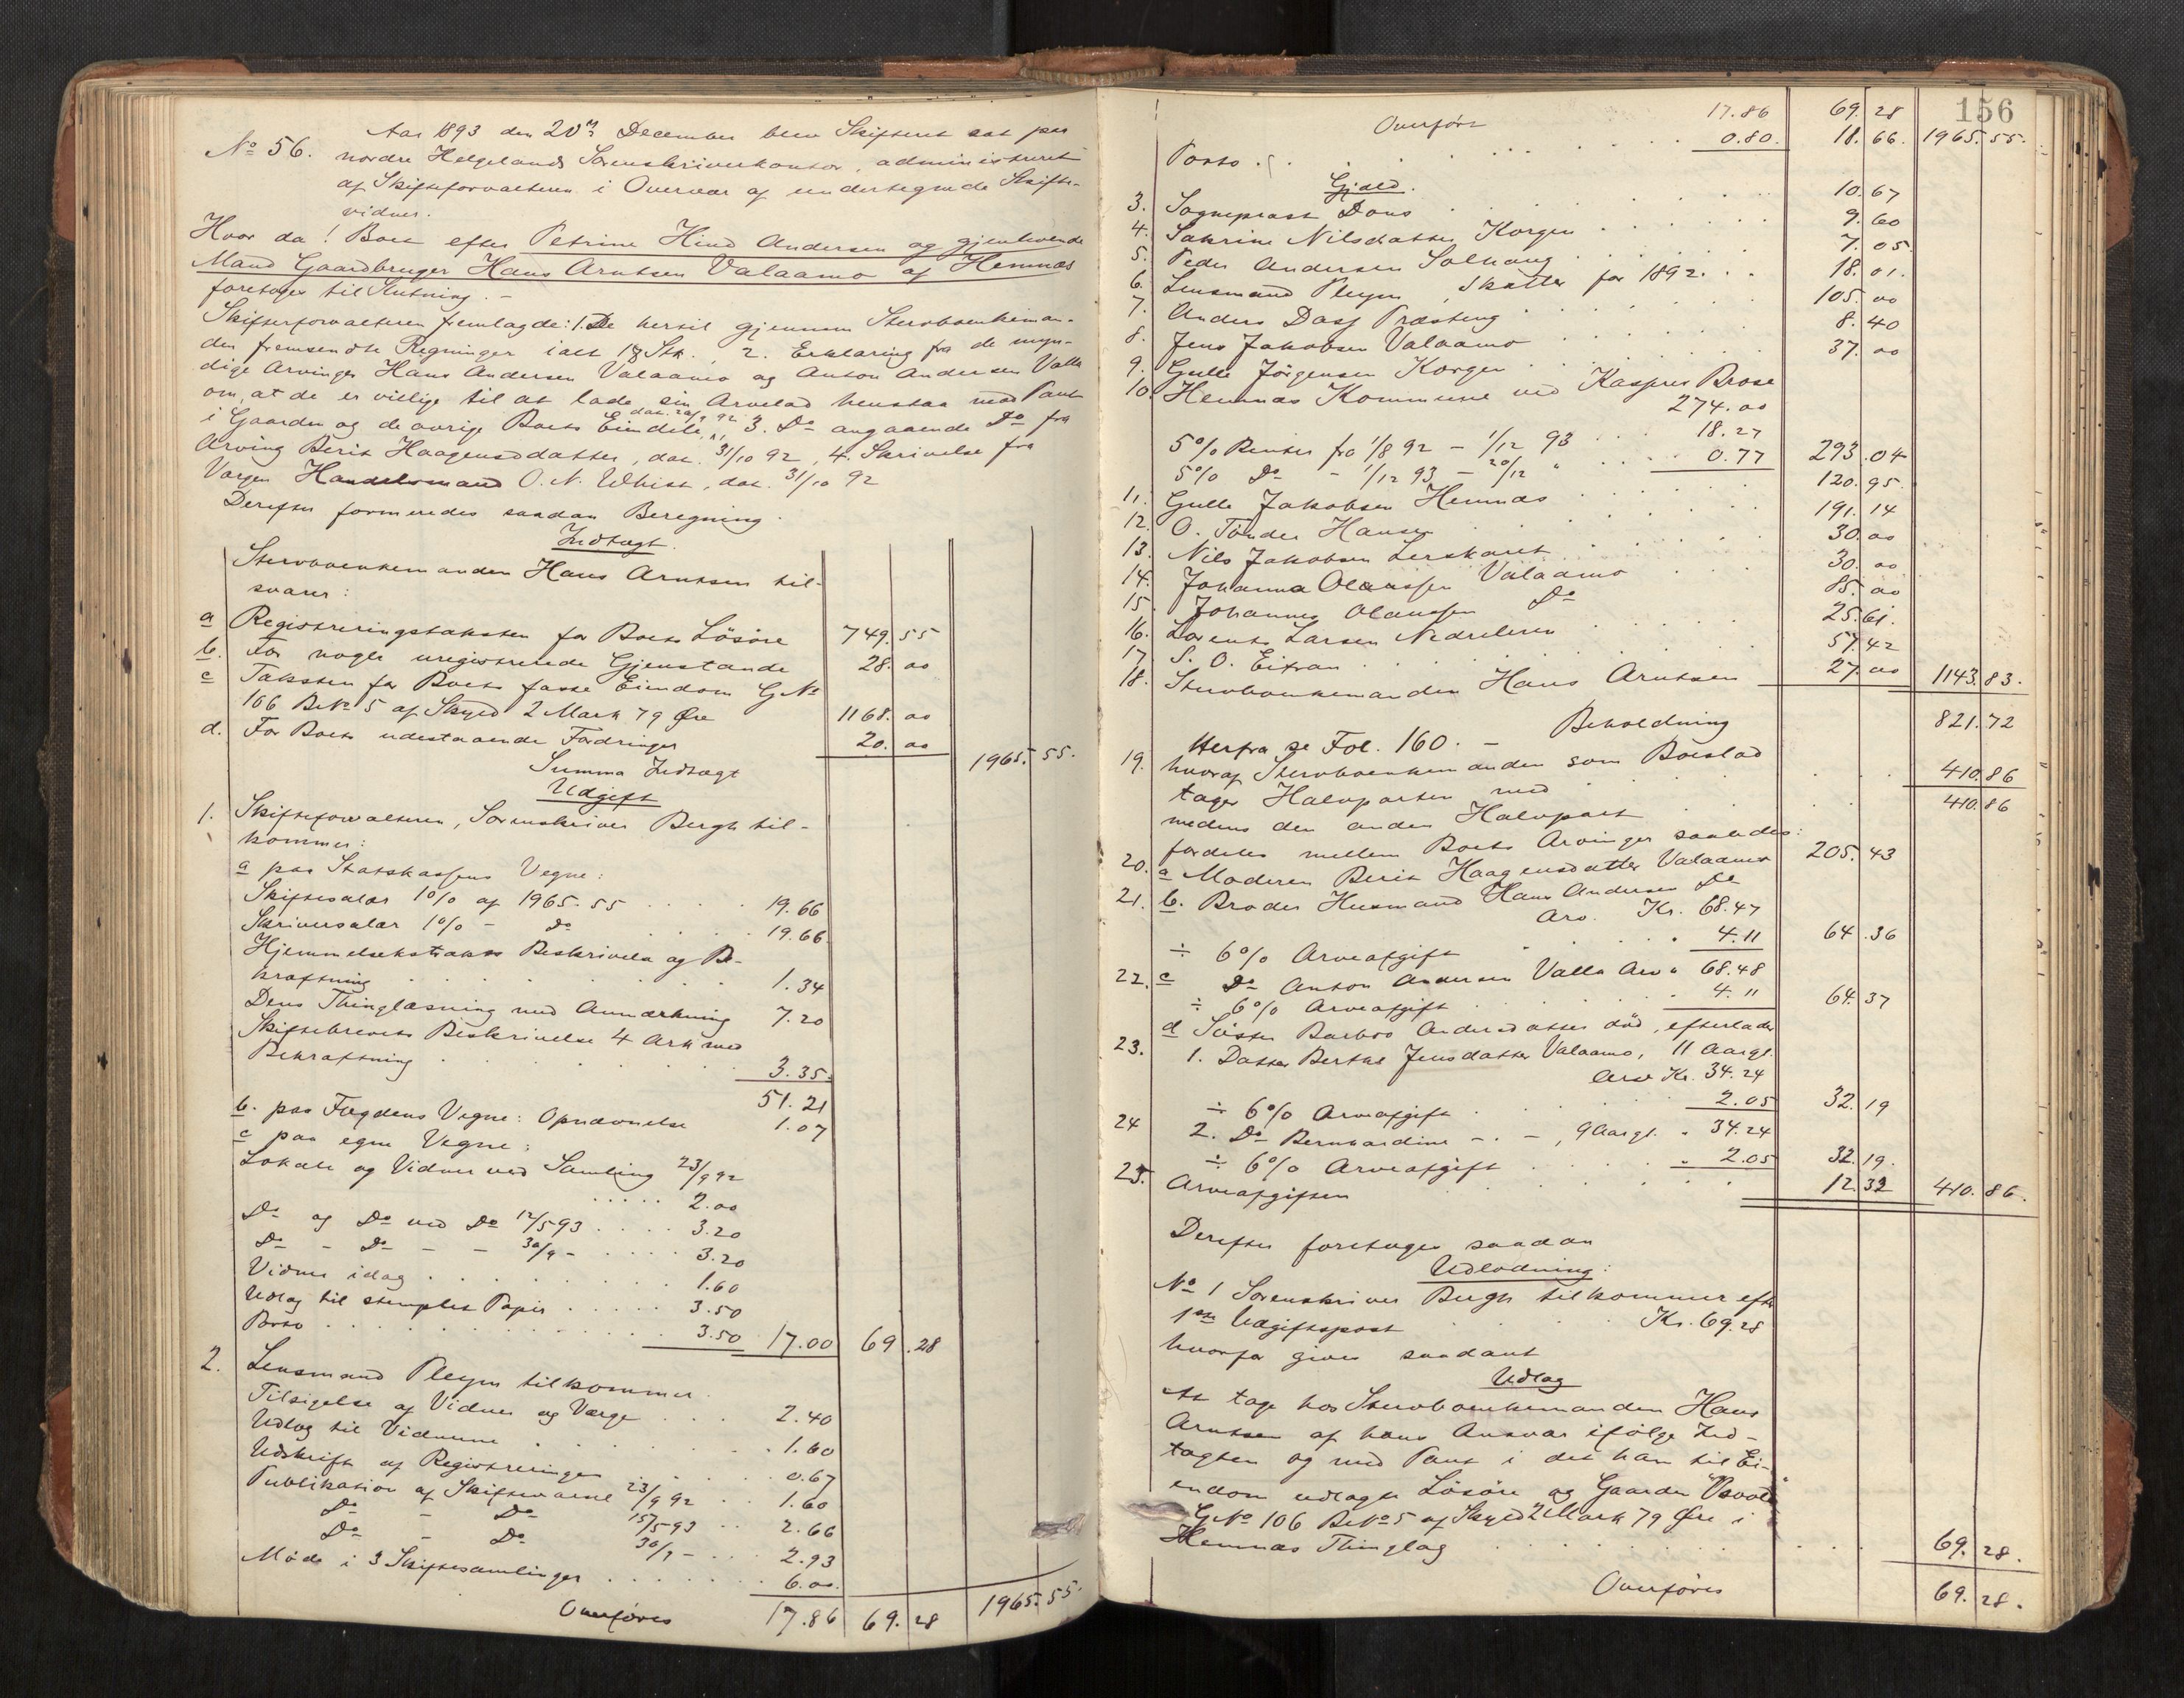 Aar 1893 den 20de December blev Skifteret sat paa
No 56. nordre Helgelands Sorenskriverkontor, administreret
af Skifteforvalteren i Overvær af undertegnede Skifte-
vidner.
Hvor da! Boet efter Petrine Hind Andersen og gjenlevende
Mand Gaardbruger Hans Arntsen Valaamo af Hemnæs
foretoges til Slutning. -
Skifteforvalteren fremlagde: 1. De hertil gjennem Stervboenkeman-
den fremsendte Regninger ialt 18 Stk., 2. Erklæring fra de myn-
dige Arvinger Hans Andersen Valaamo og Anton Andersen Valla
om, at de er villige til at lade sin Arvelod henstaa mod Pant
i Gaarden og de øvrige Boets Eiendele, dat. 20/9 92, 3. Do angaaende Do fra
Arving Berit Haagensdatter, dat. 31/10 92, 4. Skrivelse fra
Vergen Handelsmand O. N. Whist, dat. 31/10 92
Derefter formeredes saadan Beregning.
Indtægt.
Stervboenkemanden Hans Arntsen til-
svarer:
a Registreringstaksten for Boets Løsøre 749.55
b. For nogle uregistrerede Gjenstande 28.00
c Taksten for Boets faste Eiendom G.No
106 B.No 5 af Skyld 2 Mark 79 Øre 1168.00
d. For Boets udestaaende Fordringer 20.00
Summa Indtægt 1965.55.
Udgift
1. Skifteforvalteren, Sorenskriver Bergh til-
kommer:
a paa Statskassens Vegne:
Skiftesalær 1% af 1965.55 19.66
Skriversalær 1% - do 19.66
Hjemmelsekstrakts Beskrivelse og Be-
kræftning 1.34
Dens Thinglæsning med Anmærkning 7.20
Skiftebrevets Beskrivelse 4 Ark med
Bekræftning 3.35.
51.21
b. paa Fogdens Vegne: Opnævnelse 1.07
c paa egne Vegne:
Lokale og Vidner ved Samling 23/9 92
2.00
Do og Do ved Do 12/5 93 3.20
Do - Do - - 30/9 - 3.20
Vidner idag 1.60
Udlag til stemplet Papir 3.50
Porto 3.50 17.00 69.28
2. Lensmand Pleym tilkommer.
Tilsigelse af Vidner og Værge 2.40
Udlag til Vidnerne 1.60
Udskrift af Registreringen 0.67
Publikation af Skiftevarsel 23/9 92 1.60
Do - Do 15/5 93 2.66
Do - Do 30/9 - 2.93
Møde i 3 Skiftesamlinger 6.00.
Overføres 17.86 69.28 1965.55.
156
Overført 17.86 69.28
Porto 0.80. 18.66. 1965.55.
Gjæld.
3. Sogneprest Dons 10.67
4. Sakrine Nilsdatter Korgen 9.60
5. Peder Andersen Solhaug 7.05.
6. Lensmand Pleym, Skatter for 1892. 18.01.
7. Anders Dass Præsteng 105.00
8. Jens Jakobsen Valaamo 8.40
9. Gulle Jørgensen Korgen 37.00
10. Hemnæs Kommune ved Kaspers Brose
274.00
5% Renter fra 1/8 92 - 1/12 93 18.27
5% Do - 1/12 93 - 20/12 " 0.77 293.04
11. Gulle Jakobsen Hemnæs 120.95
12. O. Tønder Hansen 191.14
13. Nils Jakobsen Lerskaret 30.00
14. Johanna Olaussen Valaamo 30.00
15. Johannes Olaussen Do 85.00
16. Lorents Larsen Nedreleren 25.61.
17 S. O. Eitran 57.42
18. Stervboenkemanden Hans Arntsen 27.00 1143.83.
Beholdning 821.72
Herfra se Fol. 160. -
19. hvoraf Stervboenkemanden som Boeslod
tager Halvparten med 410.86
medens den anden Halvpart 410.86
fordeles mellem Boets Arvinger saaledes:
20. a Moderen Berit Haagensdatter Valaamo 205.43
21. b. Broder Husmand Hans Andersen Do
Arv. Kr. 68.47
÷ 6% Arveafgift 4.11 64.36
22. c Do Anton Andersen Valla Arv " 68.48
÷ 6% Arveafgift 4.11 64.37
d Søster Barbro Andersdatter død, efterlader
23. 1. Datter Berthe Jensdatter Valaamo, 11 Aargl.
Arv Kr. 34.24
÷ 6% Arveafgift 2.05 32.19
24 2. Do Bernhardine - . - , 9 Aargl. " 34.24
÷ 6% Arveafgift " 2.05 32.19.
25. Arveafgiften 12.32 410.86.
Derefter foretoges saadan
Udlodning:
No 1 Sorenskriver Bergh tilkommer efter
1ste Udgiftspost Kr. 69.28
hvorfor gives saadant
Udlæg
At tage hos Stervboenkemanden Hans
Arntsen af hans Ansvar ifølge Ind-
tægten og med Pant i det ham til Ei-
endom udlagte Løsøre og Gaarden
G.No 106 B.No 5 af Skyld 2 Mark 79 Øre i
Hemnæs Thinglag 69.28.
Overføres 69.28.